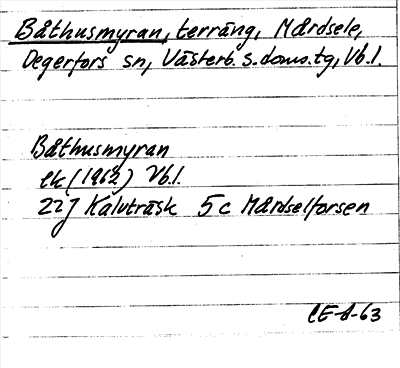 Båthusmyran, terräng, Mårdsele,
Degerfors sn, Västerb. s. doms.tg, Vb.l.
Båthusmyran
ek (1962) Vb.l.
22J Kalvträsk 5c Mårdselforsen
CE-A-63